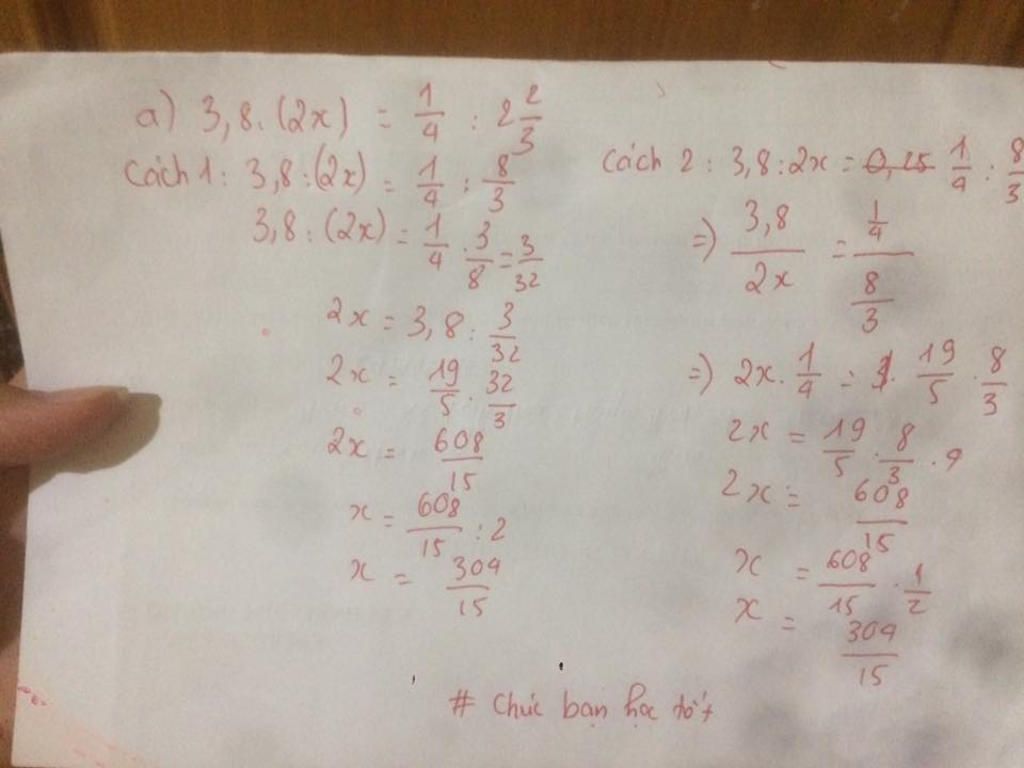 a) 3,8 : (2x) = 1/4 : 2 2/3
Cách 1 : 3,8 : (2x) = 1/4 : 8/3
3,8 : (2x) = 1/4 . 3/8 = 3/32
2x = 3,8 : 3/32
2x = 19/5 . 32/3
2x = 608/15
x = 608/15 : 2
x = 304/15
Cách 2 : 3,8 : 2x = 0,25 1/4 : 8/3
=) 3,8/2x = 1/4/8/3
=) 2x . 1/4 = 19/5 . 8/3
2x = 19/5 . 8/3 . 4
2x = 608/15
x = 608/15 . 1/2
x = 304/15
# Chúc bạn học tốt